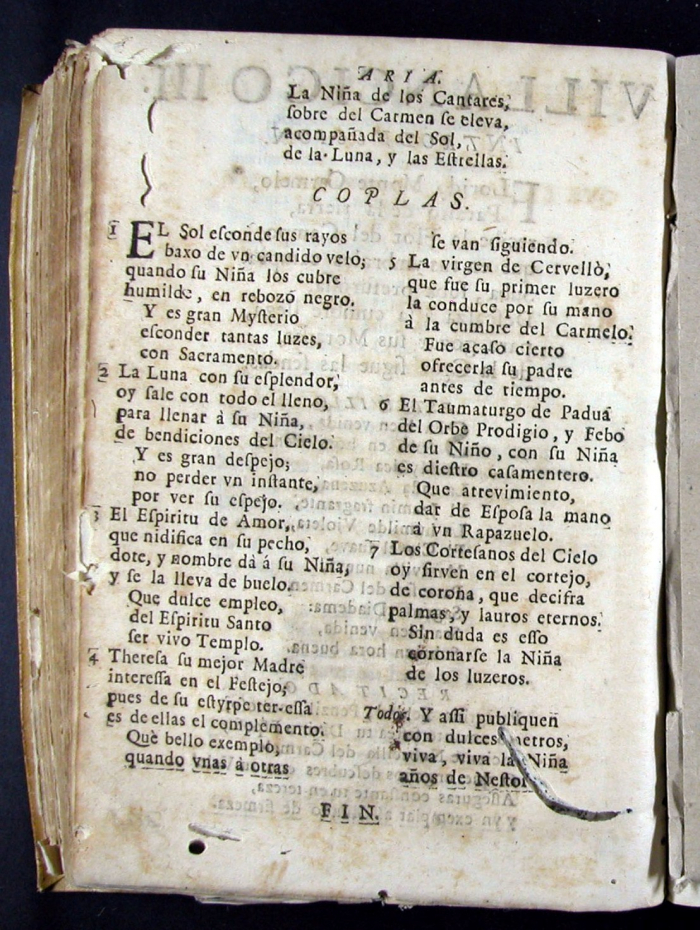 ARIA.
La Niña de los Cantares,
ſobre del Carmen ſe eleva,
acompañada del Sol,
de la Luna, y las Eſtrellas.
COPLAS.
1 EL Sol eſconde ſus rayos
baxo de vn candido velo,
quando ſu Niña los cubre
humilde, en rebozo negro.
Y es gran Myſterio
eſconder tantas luzes,
con Sacramento.
2 La Luna con ſu eſplendor,
oy ſale con todo el lleno,
para llenar à ſu Niña,
de bendiciones del Cielo.
Y es gran deſpejo;
no perder vn inſtante,
por ver ſu eſpejo.
3 El Eſpiritu de Amor,
que nidifica en ſu pecho,
dote, y nombre dá á ſu Niña,
y ſe la lleva de buelo.
Que dulce empleo,
del Eſpiritu Santo
ſer vivo Templo.
4 Thereſa ſu mejor Madre
intereſſa en el Feſtejo,
pues de ſu eſtyrpe terceſſa
es de ellas el complemento.
Què bello exemplo,
quando vnas à otras
ſe van ſiguiendo.
5 La virgen de Cervellò,
que fue ſu primer luzero
la conduce por ſu mano
à la cumbre del Carmelo.
Fue acaſo cierto
ofrecerla ſu padre
antes de tiempo.
6 El Taumaturgo de Paduá
del Orbe Prodigio, y Febo
de ſu Niño, con ſu Niña
es dieſtro caſamentero.
Que atrevimiento,
dar de Eſpoſa la mano
á vn Rapazuelo.
7 Los Corteſanos del Cielo
oy ſirven en el cortejo,
de corona, que decifra
palmas, y lauros eternos.
Sin duda es eſſo
coronarſe la Niña
de los luzeros.
Todos. Y aſſi publiquen
con dulces metros,
viva, viva la Niña
años de Neſtor
FIN.